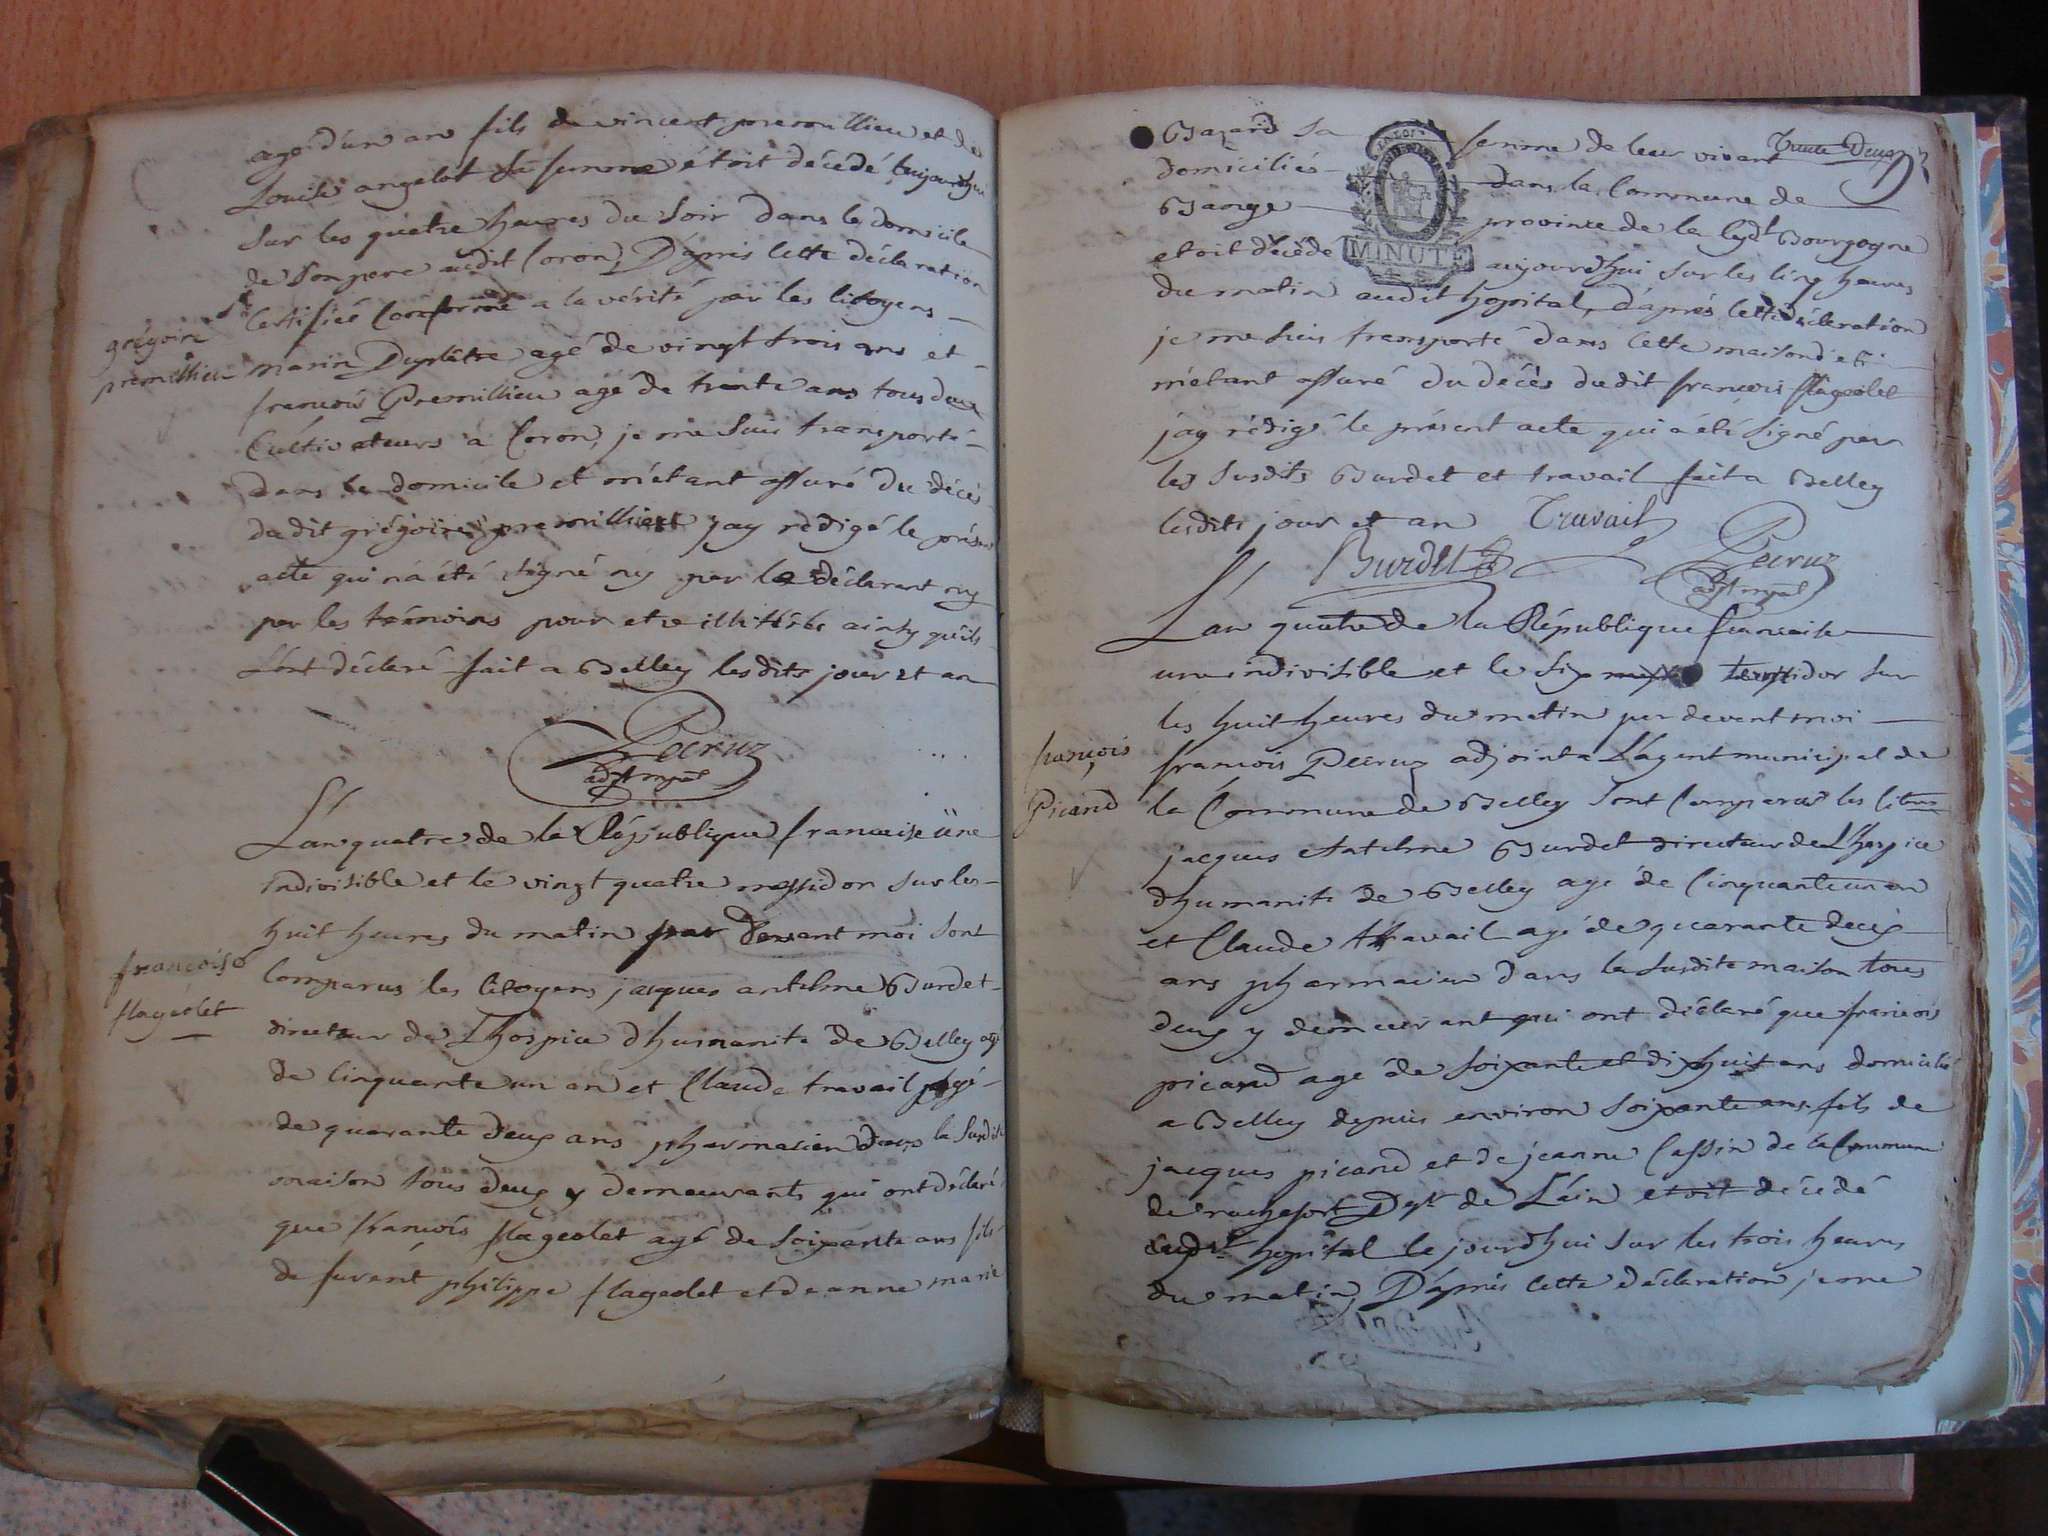 agé d'un an fils de vincent premillieu et de
Louise angelot sa femme étoit décédé aujourdhui
sur les quatre heures du soir dans le domicile
de son pere audit Coron, D'après cette déclaration
grégoire
premillieu
Certifiée Conforme a la vérité par les Citoyens
marin Duplâtre agé de vingt trois ans et
francois Premillieu agé de trente ans tous deux
Cultivateurs a Coron, je me suis transporté
dans le domicile et m'étant assuré du décès
dudit grégoire premillieu jay rédigé le présent
acte qui n'a été signé ny par le déclarant ny
par les témoins pour etre illitérés ainsy qu'ils
l'ont déclaré fait a Belley lesdits jour et an
Pecruz
adjt mpal
L'an quatre de la République francaise üne
indivisible et le vingt quatre messidor sur les
huit heures du matin par devant moi sont
francois
flageolet
Comparus les Citoyens jacques antelme Burdet
directeur de L'hospice d'humanité de Belley agé
de Cinquante un an et Claude travail agé
de quarante deux ans pharmacien dans la susdite
maison tous deux y demeurants qui ont déclaré
que francois flageolet agé de soixante ans fils
de furent philippe flageolet et de anne marie
Trente Deux
Bazard sa femme de leur vivant
domiciliés dans la Commune de
Bauge province de la cydt Bourgogne
LA LOI
MINUTE
etoit décédé aujourdhui sur les Cinq heures
du matin audit hopital, d'après cette déclaration
je me suis transporté dans cette maison et
m'étant assuré du décès dudit francois flageolet
jay rédigé le présent acte qui a été signé par
les susdits Burdet et travail fait a Belley
lesdits jour et an Travail
Burdet Pecruz
adjt mpal
L'an quatre de la République francaise
une indivisible et le six termidor sur
les huit heures du matin par devant moi
françois
Picand
francois Pecruz adjoint a L'agent municipal de
la Commune de Belley sont Comparus les Citens
jacques Antelme Burdet directeur de L'hospice
d'humanité de Belley agé de Cinquante un an
et Claude travail agé de quarante deux
ans pharmacien dans la susdite maison tous
deux y demeurant qui ont déclaré que francois
picand agé de soixante et dix huit ans domicilié
a Belley depuis environ soixante ans fils de
jacques picand et de jeanne Cassin de la Commune
de rochefort Dept de L'ain etoit décédé
audt hopital le jourdhui sur les trois heures
du matin, D'après cette déclaration je me